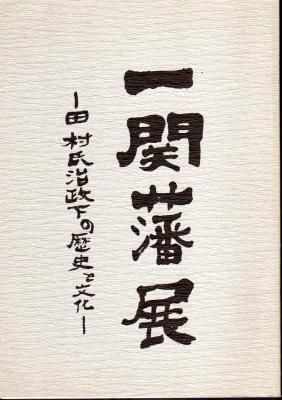 一関藩展
―田村氏治政下の歴史と文化―